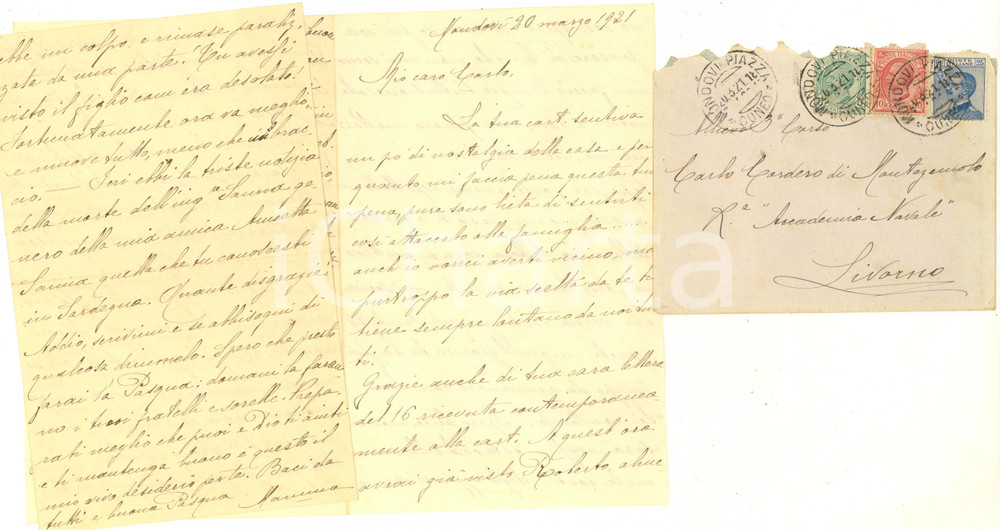 Mondovì 20 marzo 1921
Mio caro Carlo.
La tua cart. sentiva
un pò di nostalgia della casa e per
quanto mi faccia pena questa tua
pena, pure sono lieta di sentirti
così attaccato alla famiglia.....
anch'io vorrei averti vicino, ma
purtroppo la via scelta da te ti
tiene sempre lontano da noi tut
ti.
Grazie anche di tua cara lettera
del 16 ricevuta contemporanea
mente alla cart. A quest'ora
avrai già visto Roberto,
ebbe un colpo, e rimase paraliz
zata da una parte. Tu avessi
visto il figlio com'era desolato!
Fortunatamente ora va meglio,
e muove tutto, meno che un brac
cio. — Ieri ebbi la triste notizia
della morte dell'ing. Sanna ge
nero della mia amica
Sanna quella che tu conoscesti
in Sardegna. Quante disgrazie!
Addio, scrivimi e se abbisogni di
qualcosa dimmelo. Spero che presto
farai la Pasqua; domani la faran
no i tuoi fratelli e sorelle. Prepa
rati meglio che puoi e Dio ti aiuti
e ti mantenga buono è questo il
mio vivo desiderio per te. Baci da
tutti e buona Pasqua Mamma
MONDOVI PIAZZA
CUNEO
MONDOVI PIAZZA
CUNEO
MONDOVI PIAZZA
CUNEO
Allievo 1° Corso
Carlo Cordero di Montezemolo
R.a "Accademia Navale"
Livorno